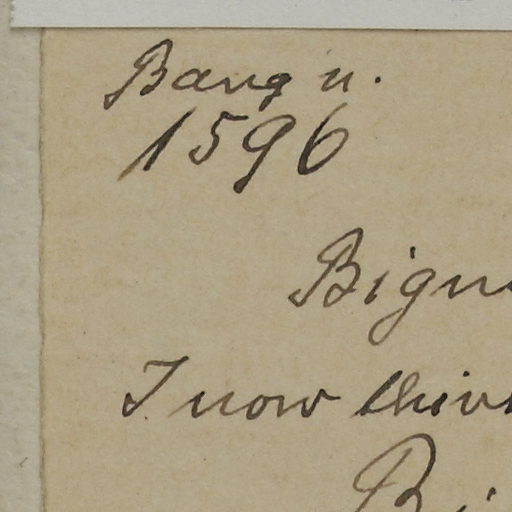 Bang n.
1596
Bign
I now think
Bi